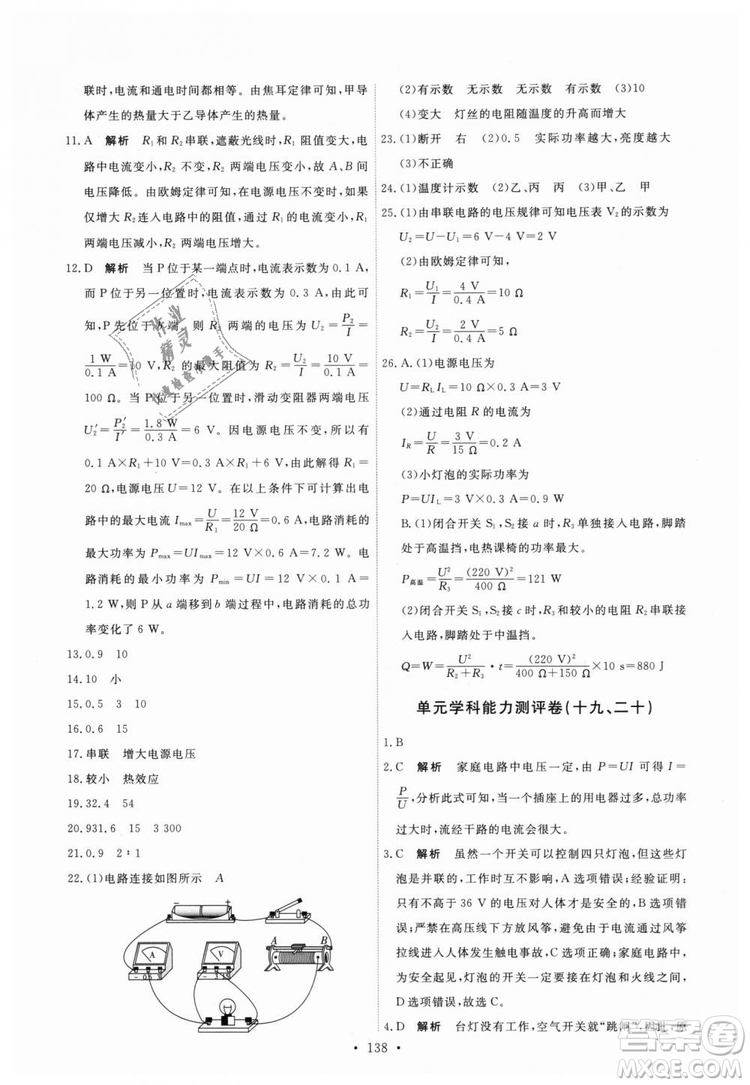 联时,电流和通电时间都相等。由焦耳定律可知,甲导
体产生的热量大于乙导体产生的热量。
11.A 解析 R₁和R₂串联,遮蔽光线时,R₁阻值变大,电
路中电流变小,R₂不变,R₂两端电压变小,故A、B间
电压降低。由欧姆定律可知,在电源电压不变时,如果
仅增大R₂连入电路中的阻值,通过R₁的电流变小,R₁
两端电压减小,R₂两端电压增大。
12.D 解析 当P位于某一端点时,电流表示数为0.1 A,
而P位于另一位置时,电流表示数为0.3 A,由此可知,
P先位于b端。则R₂两端的电压为U₂=P₂/I=
1 W/0.1 A=10 V。R₂的最大阻值为R₂=U₂/I=10 V/0.1 A=
100 Ω。当P位于另一位置时,滑动变阻器两端电压
U₂′=P₂′/I′=1.8 W/0.3 A=6 V。因电源电压不变,所以有
0.1 A×R₁+10 V=0.3 A×R₁+6 V,解得R₁=
20 Ω,电源电压U=12 V。在以上基础上可计算出电
路中的最大电流Imax=U/R₁=12 V/20 Ω=0.6 A,电路消耗的
最大功率为Pmax=UImax=12 V×0.6 A=7.2 W,电
路消耗的最小电功率为Pmin=UI=12 V×0.1 A=
1.2 W,则P从a端移到b端过程中,电路消耗的总功
率变化了6 W。
13.0.9 10
14.10 小
15.0.5 3
16.变暗 40
17.串联 增大电源电压
18.较小 热效应
19.32.4 54
20.931.6 15 3 300
21.0.9 2∶1
22.(1)电路连接如图所示 A
A B
A V
- 0.6
(2)有示数 无示数 无示数 有示数 (3)10
(4)变大 灯丝的电阻随温度的升高而增大
23.(1)断开 右 (2)0.5 实际功率越大,亮度越大
(3)不正确
24.(1)温度计示数 (2)乙、丙 丙 (3)甲、乙 甲
25.(1)由串联电路的电压规律可知电压表V₂的示数为
U₂=U-U₁=6 V-4 V=2 V
(2)由欧姆定律可知,
R₁=U₁/I=4 V/0.4 A=10 Ω
R₂=U₂/I=2 V/0.4 A=5 Ω
26.A.(1)电源电压为
U=R_L I_L=10 Ω×0.3 A=3 V
(2)通过电阻R的电流为
I_R=U/R=3 V/15 Ω=0.2 A
(3)小灯泡的实际功率为
P=UI_L=3 V×0.3 A=0.9 W
B.(1)闭合开关S₁,S₂接a时,R₃单独接入电路,脚踏
处于高温挡,电热课椅的功率为
P高温=U²/R₃=(220 V)²/400 Ω=121 W
(2)闭合开关S₁,S₂接c时,R₃和较小的电阻R₂串联接
入电路,脚踏处于中温挡。
Q=W=U²/(R₂+R₃)·t=(220 V)²/(400 Ω+150 Ω)×10 s=880 J
单元学科能力测评卷(十九、二十)
1.B
2.C 解析 家庭电路中电压一定,由P=UI可得I=
P/U,分析此式可知,当一个插座上的用电器过多时,
功率过大,流经干路的电流会很大。
3.C 解析 虽然一个开关可以控制四只灯泡,但这些灯
泡是并联的,工作时互不影响,A选项错误;经验证明,
只有不高于36 V的电压对人体才是安全的,B选项错
误;严禁在高压线下方放风筝,以防发生电流通过风筝
拉线进入人体发生触电事故,C选项正确;家庭电路中,
为安全起见,灯泡的开关必须接在灯泡和火线之间,
D选项错误,故选C。
4.D 解析 台灯没有工作,空气开关就“跳闸”
138
作业
精灵
作业检查帮手
作业精灵